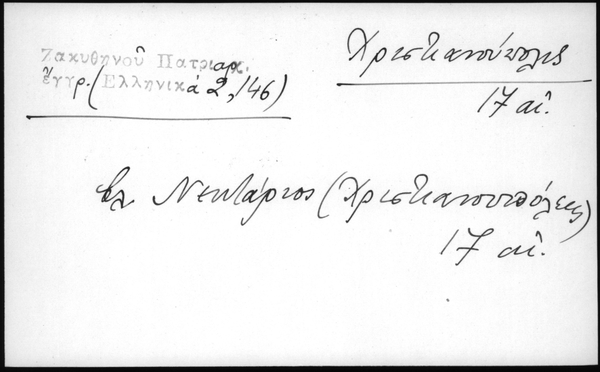 Ζακυθηνοῦ Πατριαρ.
ἔγγρ. (Ἑλληνικά 2, 146)
Χριστιανούπολις
17 αἰ.
βλ. Νεκτάριος (Χριστιανουπόλεως)
17 αἰ.